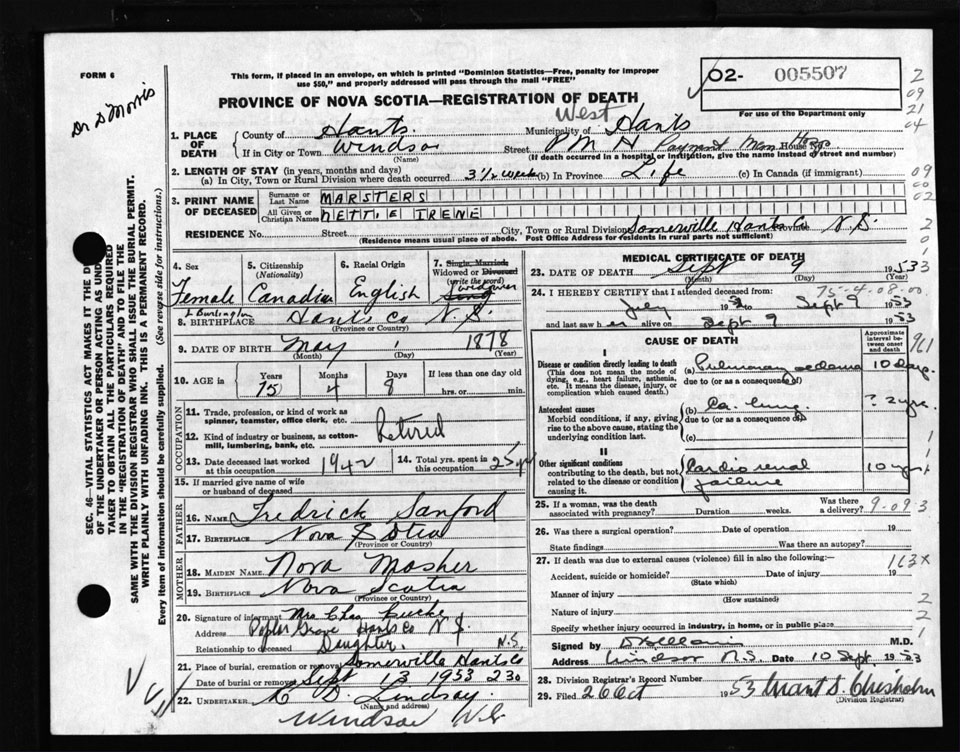 FORM 6
Dr D Morris
This form, if placed in an envelope, on which is printed "Dominion Statistics—Free, penalty for improper
use $50," and properly addressed will pass through the mail "FREE"
PROVINCE OF NOVA SCOTIA—REGISTRATION OF DEATH
O2- 005507
For use of the Department only
2
09
21
04
1. PLACE OF DEATH
County of Hants
Municipality of West Hants
If in City or Town Windsor
(Name)
Street P M H Payzant Mem House
(If death occurred in a hospital or institution, give the name instead of street and number)
2. LENGTH OF STAY (in years, months and days)
(a) In City, Town or Rural Division where death occurred 3½ weeks (b) In Province Life (c) In Canada (if immigrant)
09
00
02
3. PRINT NAME OF DECEASED
Surname or Last Name MARSTERS
All Given or Christian Names NETTIE IRENE
2
0
RESIDENCE No. Street City, Town or Rural Division Somerville Hants Co Province N.S.
(Residence means usual place of abode. Post Office Address for residents in rural parts not sufficient)
SEC. 46—VITAL STATISTICS ACT MAKES IT THE D
OF THE UNDERTAKER OR PERSON ACTING AS UND
TAKER TO OBTAIN ALL THE PARTICULARS REQUIRED
IN THE "REGISTRATION OF DEATH" AND TO FILE THE
SAME WITH THE DIVISION REGISTRAR WHO SHALL ISSUE THE BURIAL PERMIT.
WRITE PLAINLY WITH UNFADING INK. THIS IS A PERMANENT RECORD.
Every item of information should be carefully supplied. (See reverse side for instructions.)
4. Sex
Female
5. Citizenship
(Nationality)
Canadian
6. Racial Origin
English
7. Single, Married,
Widowed or Divorced
(write the word)
8. BIRTHPLACE Burlington Hants Co N.S.
(Province or Country)
9. DATE OF BIRTH May 1 1878
(Month) (Day) (Year)
10. AGE in
Years Months Days If less than one day old
75 4 8 hrs. or min.
OCCUPATION
11. Trade, profession, or kind of work as
spinner, teamster, office clerk, etc.
Retired
12. Kind of industry or business, as cotton-
mill, lumbering, bank, etc.
13. Date deceased last worked
at this occupation 1942
14. Total yrs. spent in
this occupation 25 yrs
15. If married give name of wife
or husband of deceased
FATHER
16. NAME Fredrick Sanford
17. BIRTHPLACE Nova Scotia
(Province or Country)
MOTHER
18. MAIDEN NAME Nora Mosher
19. BIRTHPLACE Nova Scotia
(Province or Country)
20. Signature of informant Mrs Chas
Address Poplar Grove Hants Co N.S.
Relationship to deceased Daughter
21. Place of burial, cremation or removal Somerville Hants Co N.S.
Date of burial or removal Sept 13 1953 2 30
22. UNDERTAKER C D Lindsay
(Name and address)
Windsor N.S.
MEDICAL CERTIFICATE OF DEATH
23. DATE OF DEATH Sept 9 1953
(Month) (Day)
3
24. I HEREBY CERTIFY that I attended deceased from: 75-4-08-00
July 1953 to Sept 9 1953
and last saw her alive on Sept 9 1953
CAUSE OF DEATH
Approximate interval between onset and death
961
I
Disease or condition directly leading to death
(This does not mean the mode of
dying, e.g., heart failure, asthenia,
etc. It means the disease, injury, or
complication which caused death.)
(a) Pulmonary oedema 10 days
due to (or as a consequence of)
Antecedent causes
Morbid conditions, if any, giving
rise to the above cause, stating the
underlying condition last.
(b) Ca. lung ? 2 yrs.
due to (or as a consequence of)
(c)
1
II
Other significant conditions
contributing to the death, but not
related to the disease or condition
causing it.
Cardio renal failure 10 yrs
1
25. If a woman, was the death
associated with pregnancy? Duration weeks. Was there
a delivery?
9-09-3
26. Was there a surgical operation? Date of operation 19
State findings Was there an autopsy?
27. If death was due to external causes (violence) fill in also the following:—
163X
Accident, suicide or homicide? Date of injury 19
(State which)
Manner of injury
(How sustained)
2
Nature of injury
2
Specify whether injury occurred in industry, in home, or in public place
1
Signed by M.D.
Address Windsor N.S. Date 10 Sept 1953
28. Division Registrar's Record Number
29. Filed 26 Oct 1953 Grant S. Chisholm
(Division Registrar)